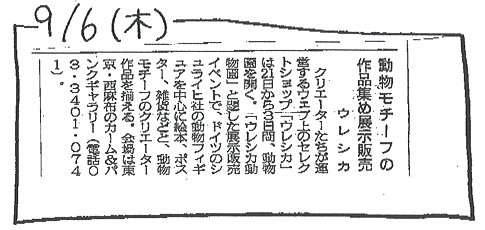 9/6(木)
動物モチーフの
作品集め展示販売
ウレシカ
クリエーターたちが運
営するウェブ上のセレク
トショップ「ウレシカ」
は21日から3日間、動物
園を開く。「ウレシカ動
物園」と題した展示販売
イベントで、ドイツのシ
ュライヒ社の動物フィギ
ュアを中心に絵本、ポス
ター、雑貨などと、動物
モチーフのクリエーター
作品を揃える。会場は東
京・西麻布のカーム&パ
ンクギャラリー(電話0
3・3401・074
1)。